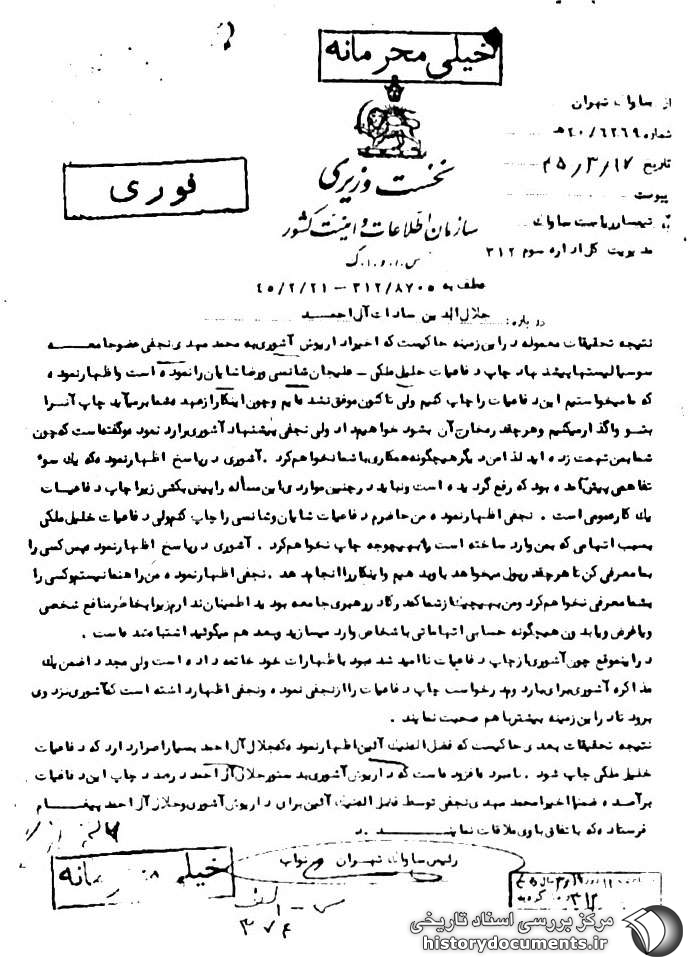 خیلی محرمانه
از ساواک تهران
شماره ۲۰/۶۲۶۹ ه‍
تاریخ ۴۵/۳/۱۷
پیوست
فوری
نخست وزیری
سازمان اطلاعات و امنیت کشور
س.ا.و.ا.ک
تیمسار ریاست ساواک
مدیریت کل اداره سوم ۳۱۲
عطف به ۳۱۲/۸۷۰۵ – ۴۵/۲/۲۱
درباره: جلال الدین سادات آل احمد
نتیجه تحقیقات معموله در این زمینه حاکیست که اخیرا داریوش آشوری به محمد مهدی نجفی عضو جامعه
سوسیالیستها پیشنهاد چاپ دفاعیات خلیل ملکی – علیجان شانسی و رضا شایان را نموده است و اظهار نموده
که ما میخواستیم این دفاعیات را چاپ کنیم ولی تاکنون موفق نشده ایم و چون اینکار از عهده شما برمیآید چاپ آنرا
بشما واگذار میکنیم و هر چقدر مخارج آن بشود خواهیم داد ولی نجفی پیشنهاد آشوری را رد نموده و گفته است که چون
شما بمن تهمت زده اید لذا من دیگر هیچگونه همکاری با شما نخواهم کرد . آشوری در پاسخ اظهار نموده که یک سوء
تفاهمی پیش آمده بود که رفع گردیده است و نباید در چنین مواردی این مسأله را پیش بکشی زیرا چاپ دفاعیات
یک کار عمومی است . نجفی اظهار نموده من حاضرم دفاعیات شایان و شانسی را چاپ کنم ولی دفاعیات خلیل ملکی
بسبب اتهامی که بمن وارد ساخته است را بهیچوجه چاپ نخواهم کرد . آشوری در پاسخ اظهار نموده پس کسی را
بما معرفی کن تا هر چقدر پول میخواهد باو بدهیم و اینکار را انجام دهد . نجفی اظهار نموده من راهنما نیستم و کسی را
بشما معرفی نخواهم کرد و من بهیچیک از شما که در کادر رهبری جامعه بودید اطمینان ندارم زیرا بخاطر منافع شخصی
و یا غرض و یا بدون هیچگونه حسابی اتهاماتی باشخاص وارد میسازید و بعد هم میگوئید اشتباه شده است .
در اینموقع چون آشوری از چاپ دفاعیات ناامید شده بود باظهارات خود خاتمه داده است ولی مجددا ضمن یک
مذاکره آشوری برای بار دوم درخواست چاپ دفاعیات را از نجفی نموده و نجفی اظهار داشته است که آشوری نزد وی
برود تا در این زمینه بیشتر با هم صحبت نمایند .
نتیجه تحقیقات بعدی حاکیست که فضل المتین آئین اظهار نموده که جلال آل احمد بسیار اصرار دارد که دفاعیات
خلیل ملکی چاپ شود . نامبرده افزوده است که داریوش آشوری بدستور جلال آل احمد درصدد چاپ این دفاعیات
برآمده ضمنا اخیرا محمد مهدی نجفی توسط فضل آئین برای داریوش آشوری و جلال آل احمد پیغام
فرستاده که باتفاق با وی ملاقات نمایند
رئیس ساواک تهران نواب
خیلی محرمانه
۳۷۴
مرکز بررسی اسناد تاریخی
historydocuments.ir